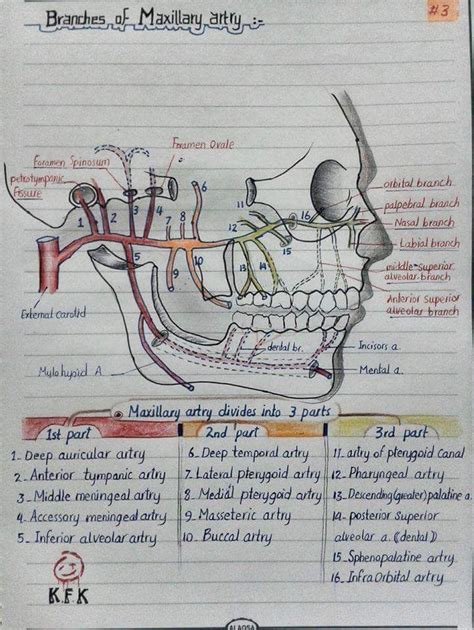 Branches of Maxillary artry :-
#3
Foramen Ovale
Foramen Spinosum
petrotympanic
Fissure
1
2
3
4
5
6
7
8
9
10
11
12
13
14
15
16
orbital branch
palpebral branch
Nasal branch
Labial branch
middle Superior
alveolar branch
Anterior Superior
alveolar branch
External Carotid
Mylohyoid A
dental br.
Incisors a.
Mental a.
Maxillary artry divides into 3 parts
1st part
1. Deep auricular artry
2. Anterior tympanic artry
3. Middle meningeal artry
4. Accessory meningeal artry
5. Inferior alveolar artry
2nd part
6. Deep temporal artry
7. Lateral pterygoid artry
8. Medial pterygoid artry
9. Masseteric artry
10. Buccal artry
3rd part
11. artry of pterygoid Canal
12. Pharyngeal artry
13. Descending (greater) palatine a.
14. posterior Superior
alveolar a. (dental)
15. Sphenopalatine artry
16. Infra Orbital artry
K.F.K
ALAQSA